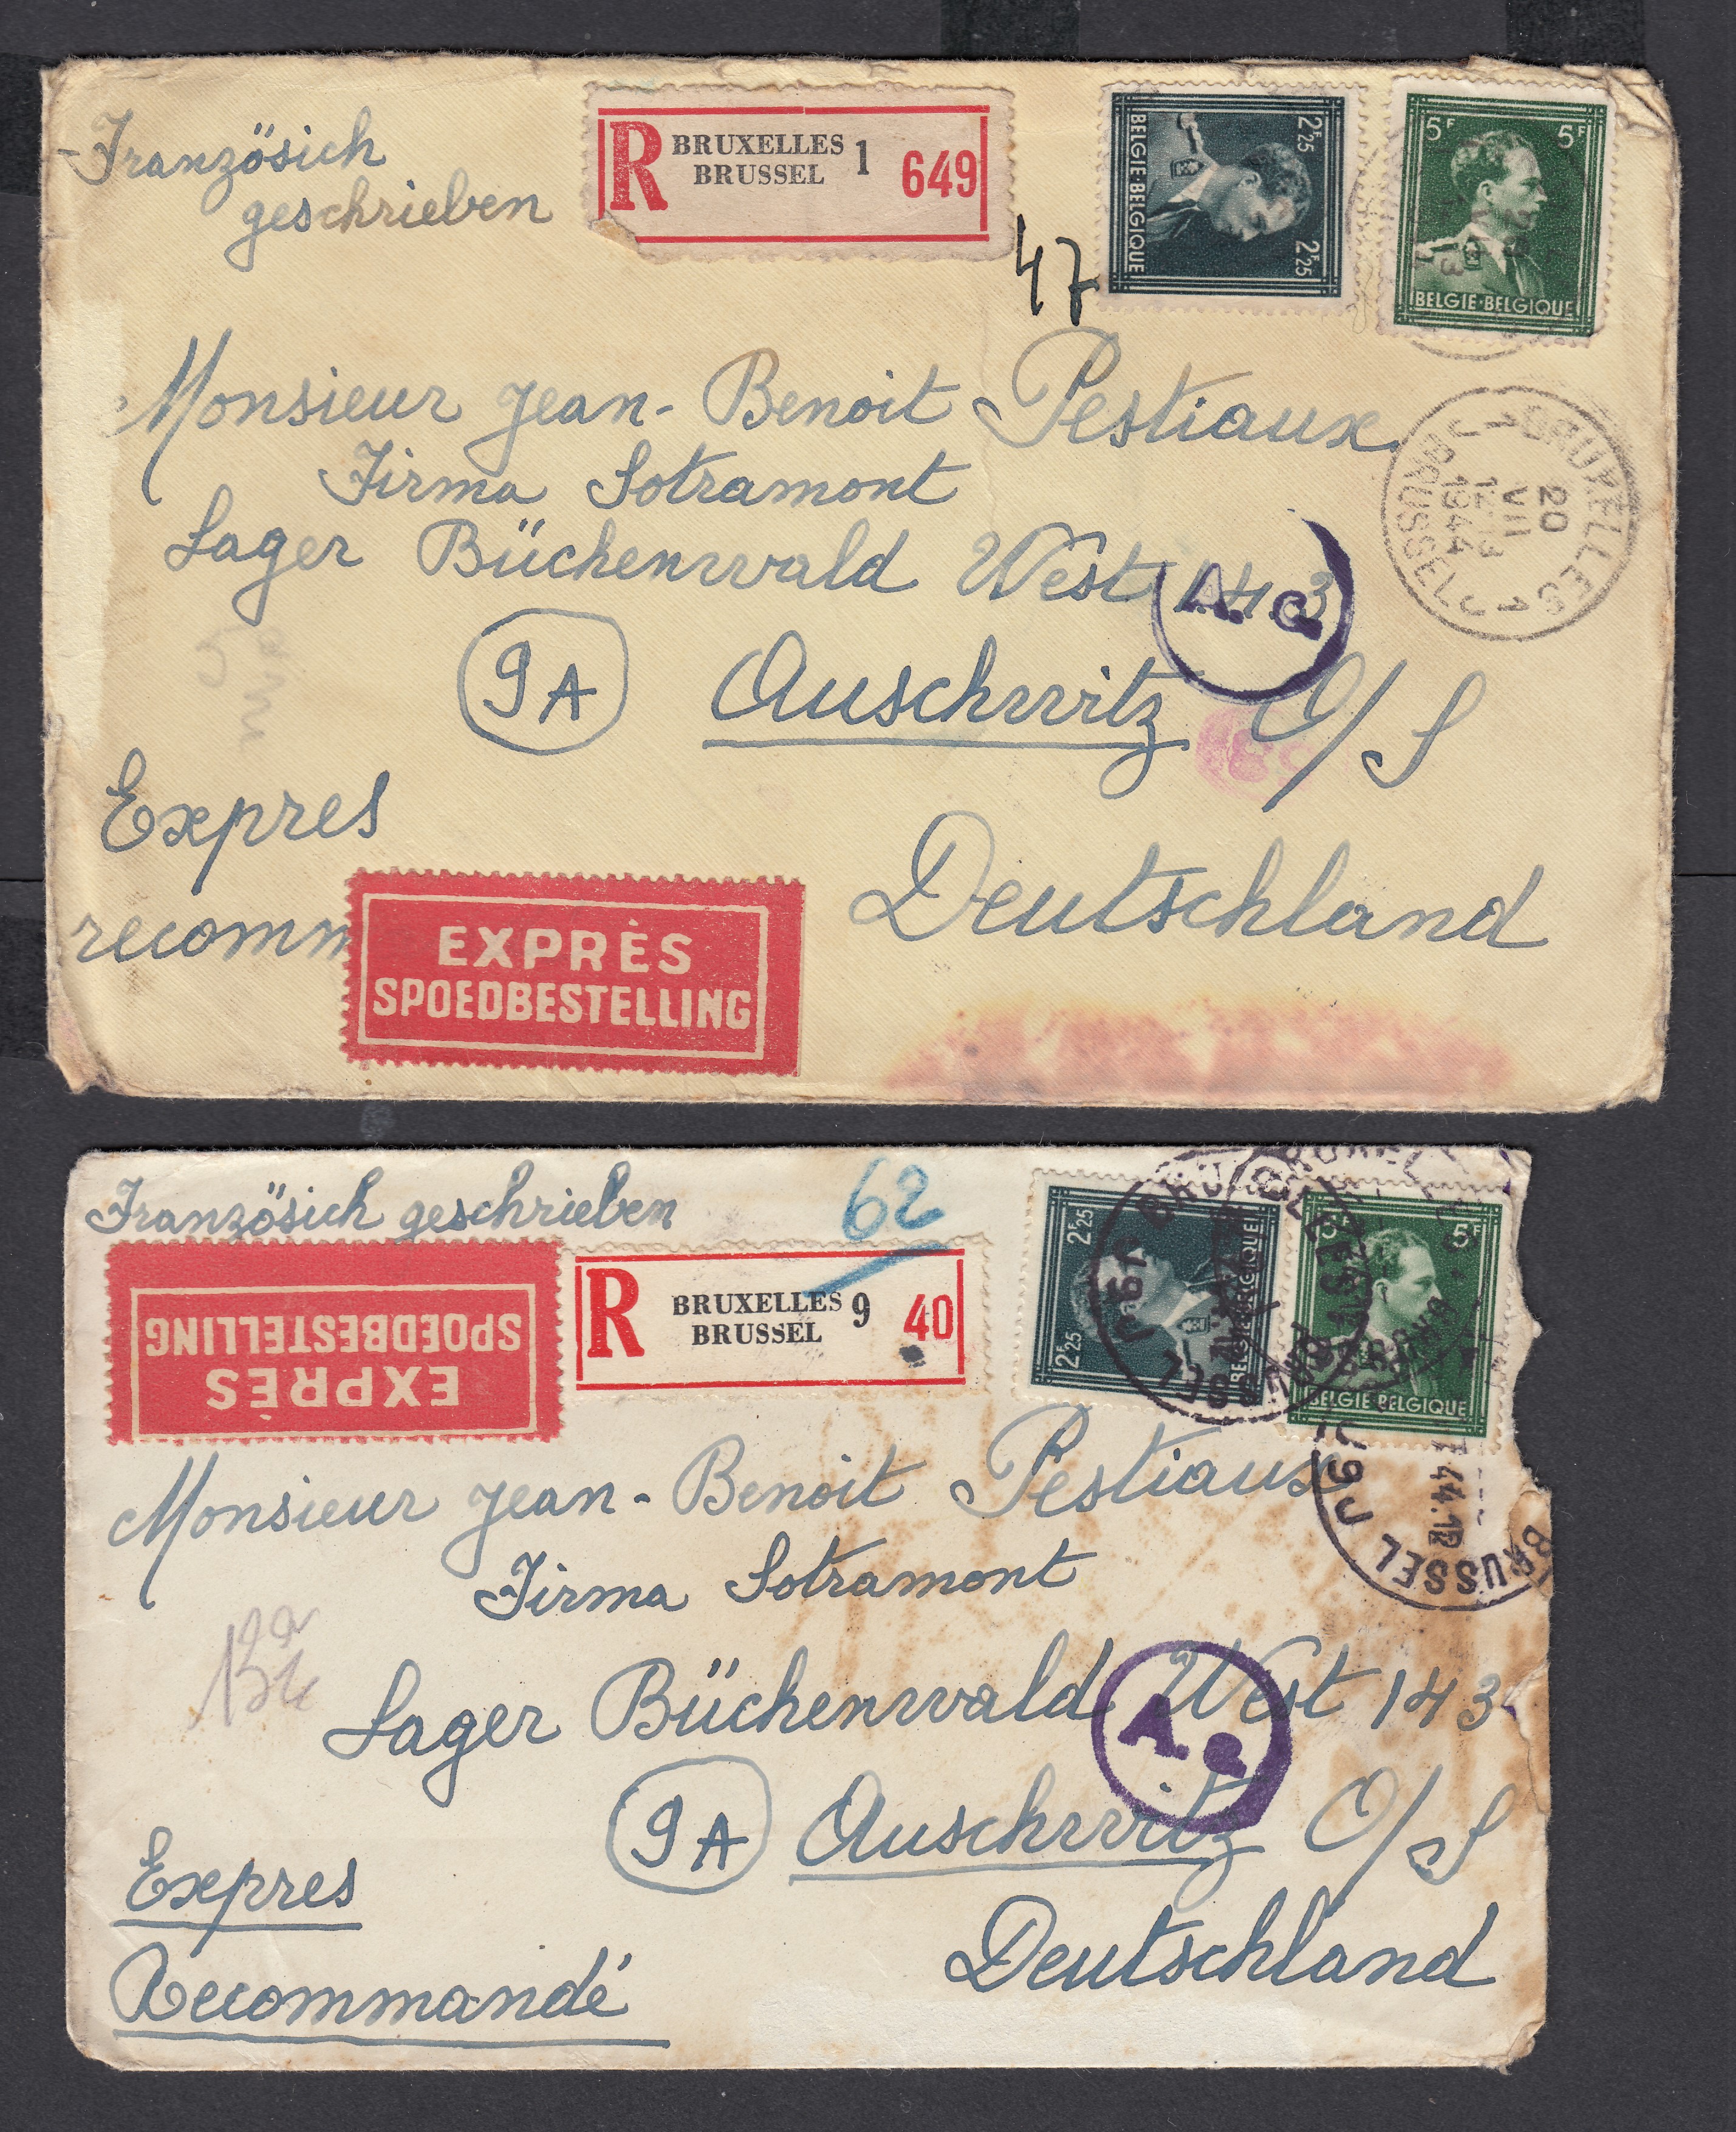 Französich
geschrieben
R BRUXELLES 1 649
BRUSSEL
47
2F25 2F25
BELGIE·BELGIQUE
5F 5F
BELGIE·BELGIQUE
Monsieur Jean-Benoit Pestiaux
Firma Sotramont
Lager Büchenwald West 143
A.a
BRUXELLES 1
20
VII
1944
BRUSSEL
9A Auschwitz O/S
Expres
Deutschland
recomm
EXPRÈS
SPOEDBESTELLING
Französich geschrieben
62
EXPRÈS
SPOEDBESTELLING
R BRUXELLES 9 40
BRUSSEL
2F25 2F25
BELGIE·BELGIQUE
5F 5F
BELGIE·BELGIQUE
BRUSSEL
Monsieur Jean-Benoit Pestiaux
Firma Sotramont
Lager Büchenwald West 143
A.a
9A Auschwitz O/S
Expres
Deutschland
Recommandé